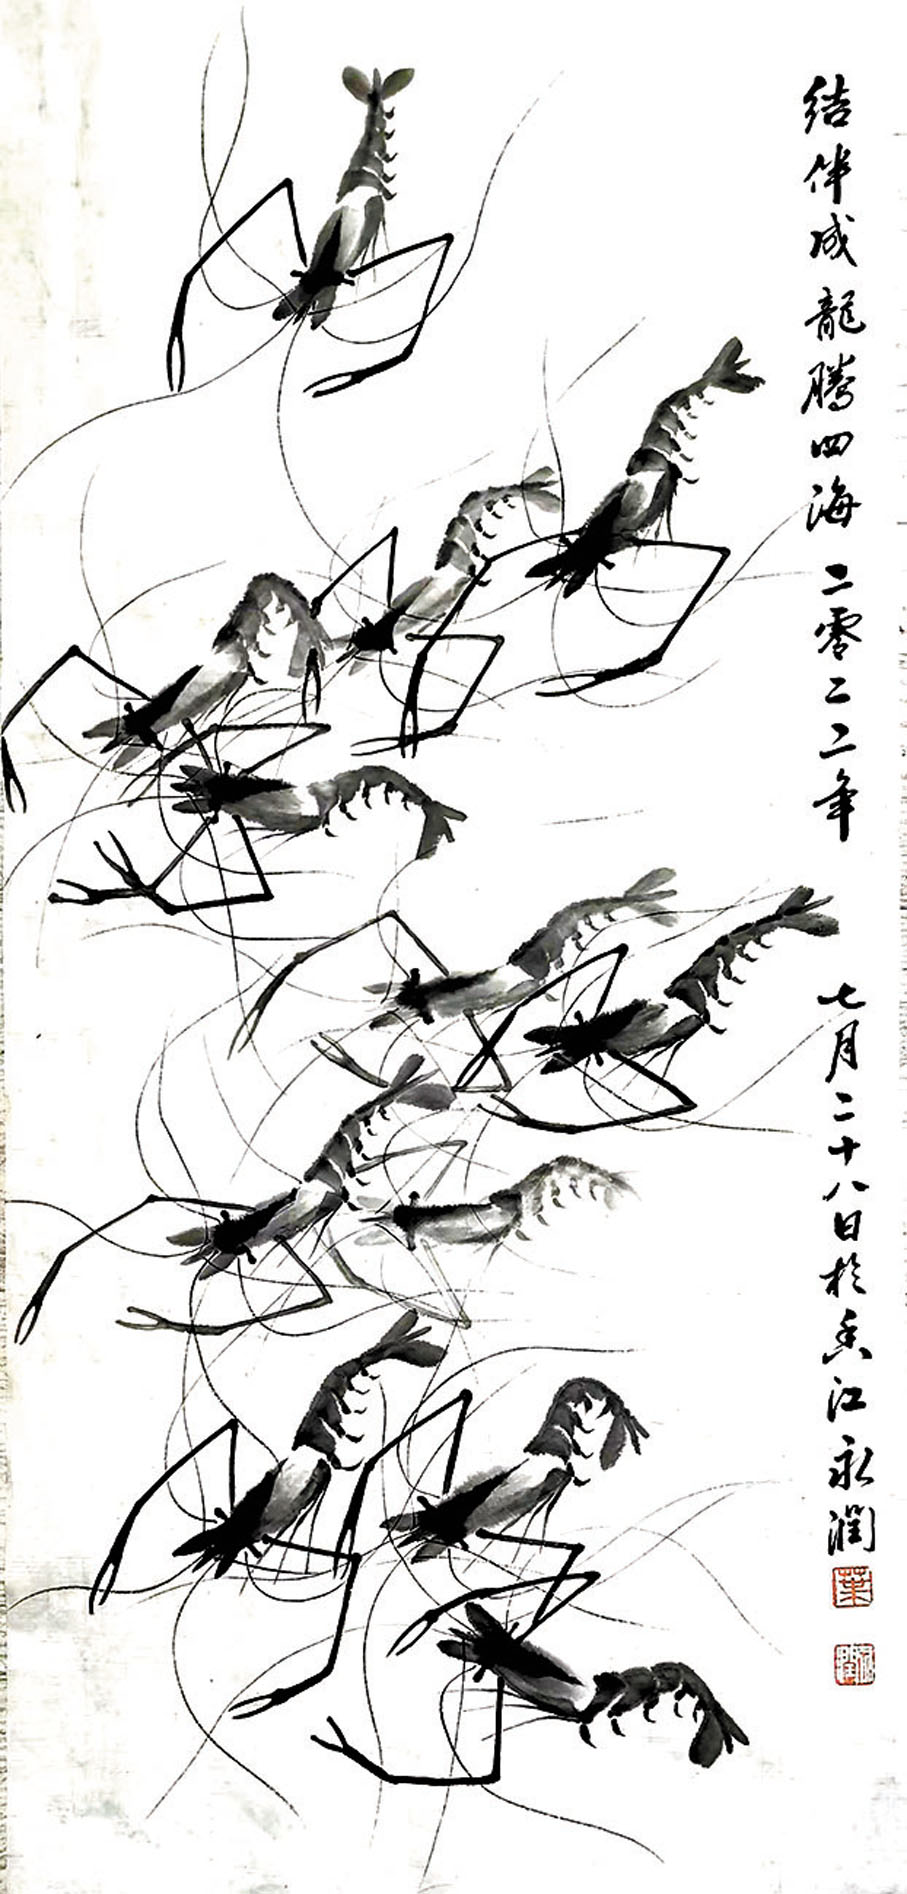 结伴成龍腾四海 二零二二年 七月二十八日於香江 永潤
葉